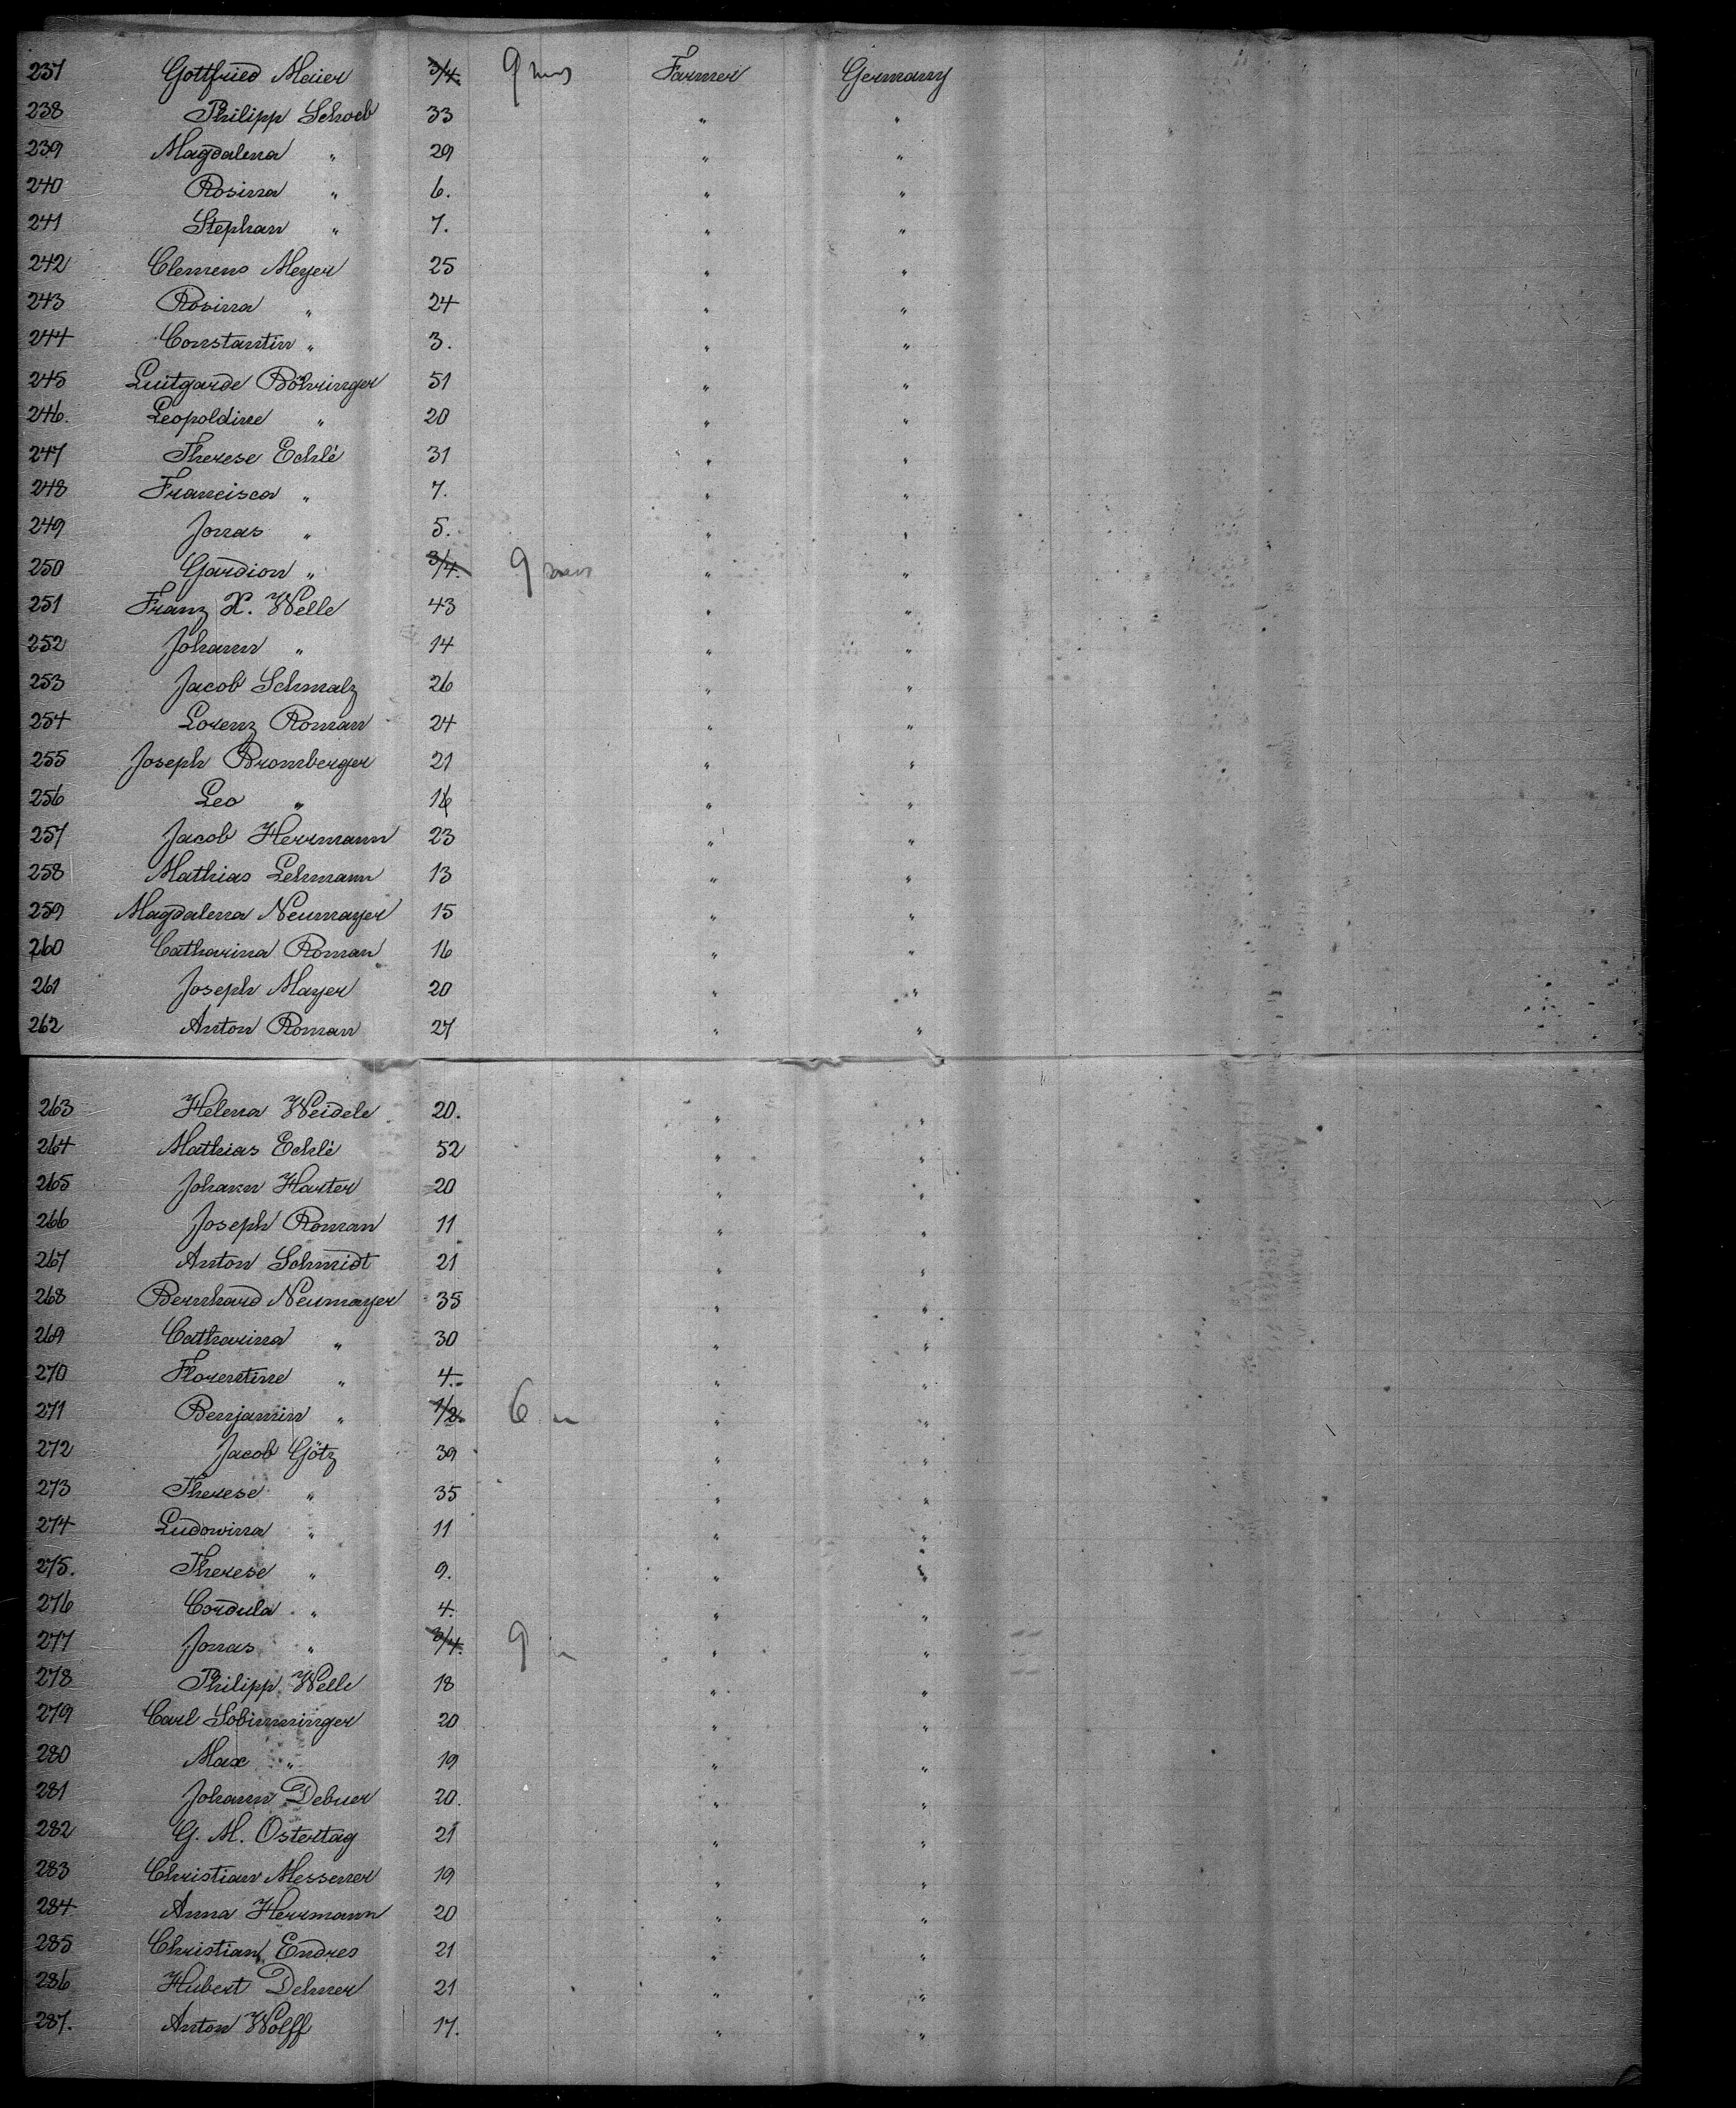 237 Gottfried Maier 3/4 9 mos Farmer Germany
238 Philipp Schoeb 33 " "
239 Magdalena " 29 " "
240 Rosina " 6. " "
241 Stephan " 7. " "
242 Clemens Meyer 25 " "
243 Rosina " 24 " "
244 Constantin " 3. " "
245 Luitgarde Böhringer 51 " "
246. Leopoldine " 20 " "
247 Therese Echlé 31 " "
248 Francisca " 7. " "
249 Jonas " 5. " "
250 Gardion " 3/4. 9 mos " "
251 Franz X. Welle 43 " "
252 Johann " 14 " "
253 Jacob Schmalz 26 " "
254 Lorenz Roman 24 " "
255 Joseph Bromberger 21 " "
256 Leo " 16 " "
257 Jacob Herrmann 23 " "
258 Mathias Lehmann 13 " "
259 Magdalena Neumayer 15 " "
260 Catharina Roman 16 " "
261 Joseph Mayer 20 " "
262 Anton Roman 27 " "
263 Helena Weidele 20. " "
264 Mathias Echlé 52 " "
265 Johann Harter 20 " "
266 Joseph Roman 11 " "
267 Anton Schmidt 21 " "
268 Bernhard Neumayer 35 " "
269 Catharina " 30 " "
270 Florentine " 4. " "
271 Benjamin " 1/2. 6 m " "
272 Jacob Götz 39 " "
273 Therese " 35 " "
274 Ludowina " 11 " "
275. Therese " 9. " "
276 Cordula " 4. " "
277 Jonas " 3/4. 9 m " "
278 Philipp Welle 18 " "
279 Carl Lobimminger 20 " "
280 Max " 19 " "
281 Johann Debuer 20. " "
282 G. M. Ostertag 21 " "
283 Christian Messener 19 " "
284 Anna Herrmann 20 " "
285 Christian Endres 21 " "
286 Hubert Dehner 21 " "
287. Anton Wolff 17. " "